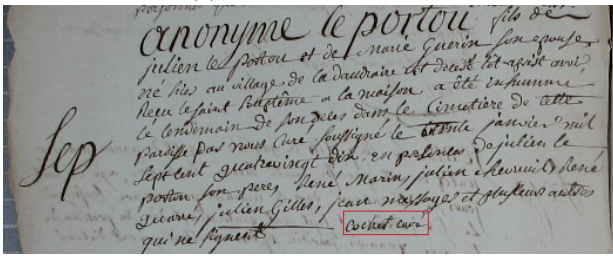 anonyme le portou fils de
julien le Portou et de Marie Guerin son epouse
né hier au village de la daudraire est decedé tot apres avoir
Recu le saint Baptême a la maison a été inhumé
le lendemain de son deces dans le Cimetière de cette
paroisse par nous Curé soussigné le trente janvier mil
Sep
sept cent quatrevingt dix en presence de julien le
portou son pere, René Marin, julien chevreuil, René
julien Gilles, jean messayes et plusieurs autres
qui ne signent cochet curé